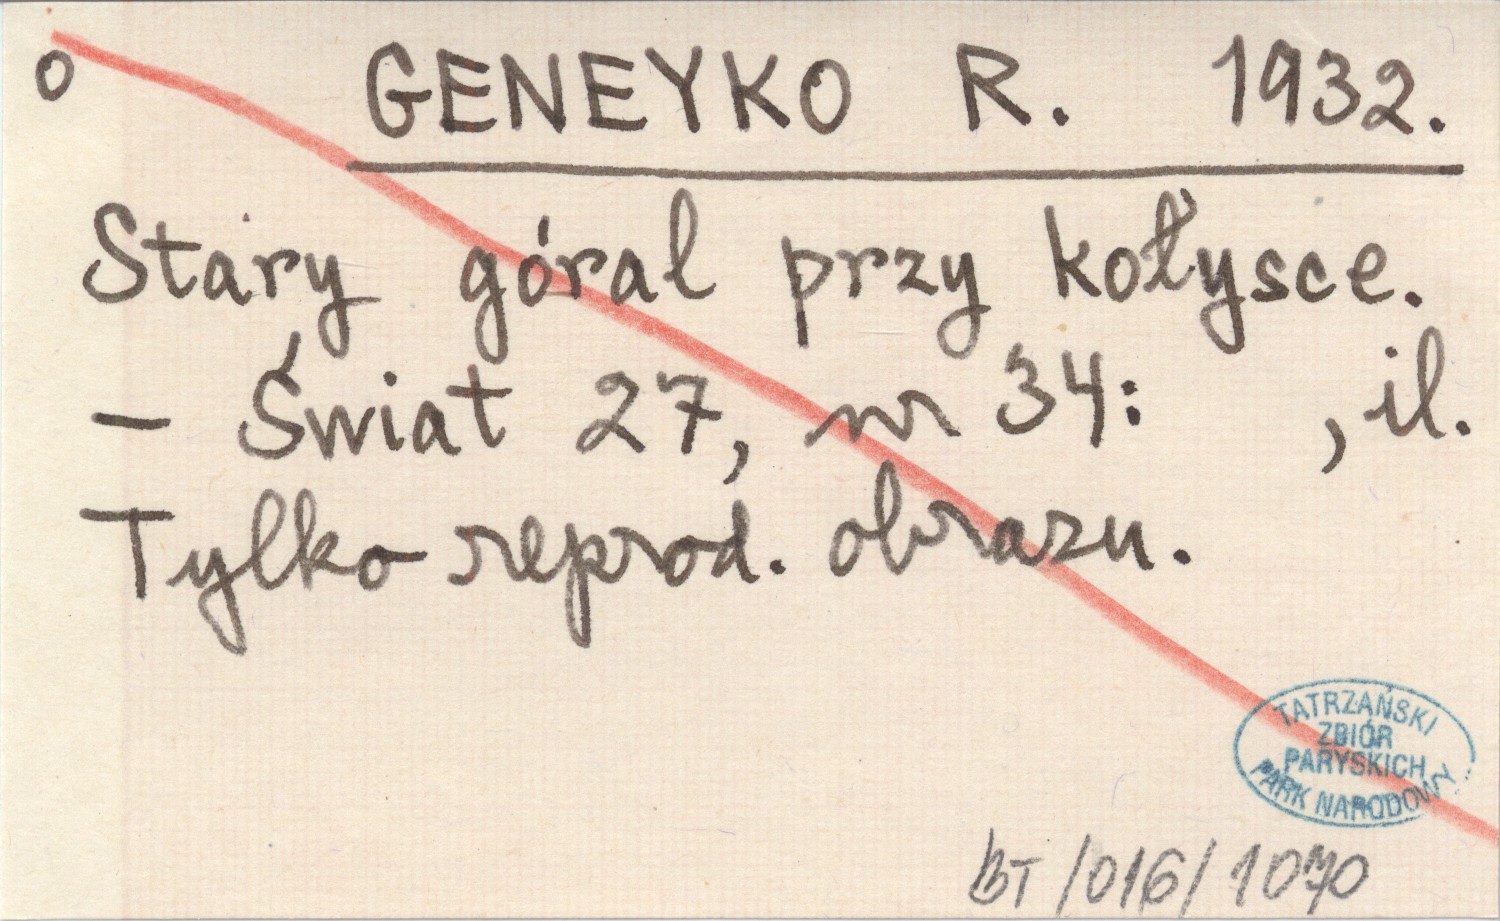 o GENEYKO R. 1932.
Stary góral przy kołysce.
– Świat 27, nr 34: , il.
Tylko reprod. obrazu.
TATRZAŃSKI
ZBIÓR
PARYSKICH
PARK NARODOWY
BT /016/ 1070